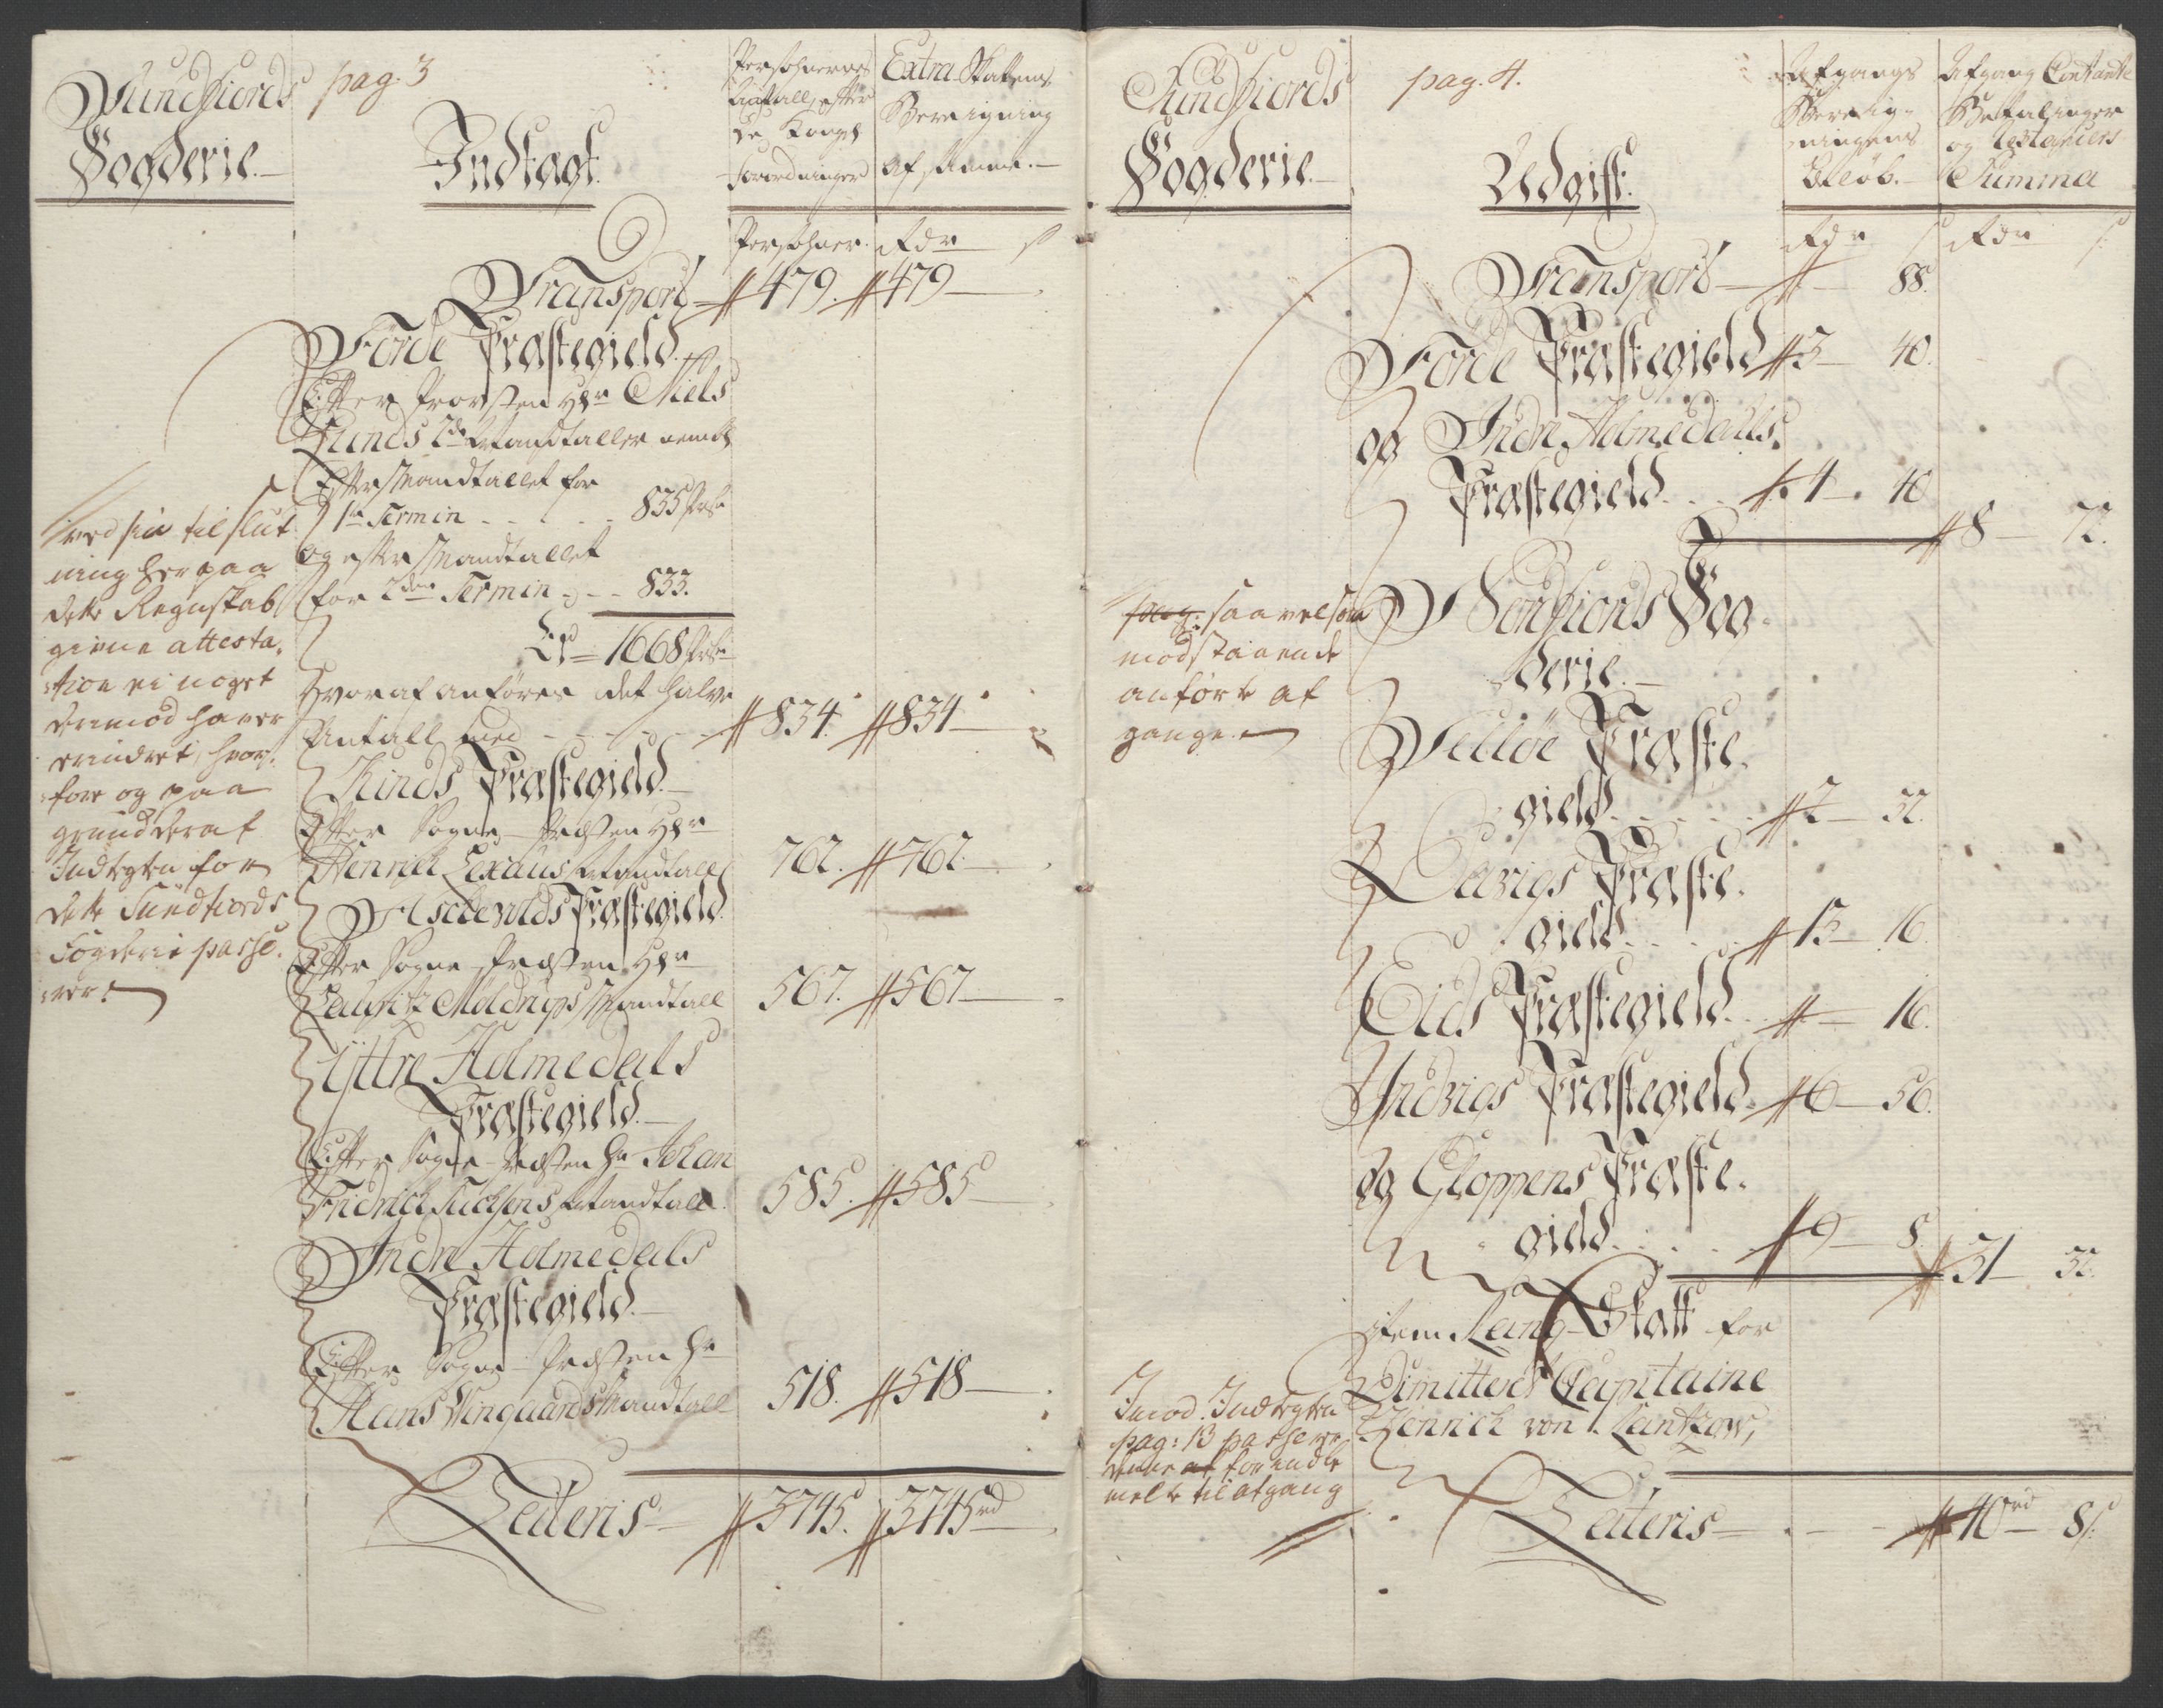 Sundfiords
Fogderie.
pag. 3
Indtægt.
Persohnernes
Antall, efter
de Kongl
Forordninger
Extra Skattens
Bereigning
af samme.
Persohner. Rdr s
Transport 479. 479
Förde Præstegield.
Efter Provsten Hr Niels
Sunds 2de Mandtaller nembl
Efter Mandtallet for
1te Termin 835 Pers
og efter Mandtallet
for 2den Termin 833.
Er 1668 Pers
Hvoraf anföres det halve
Antall med 834. 834
Kinds Præstegield.
Efter Sogne-Præsten Hr
Henrich Lexaus Mandtall 762. 762.
Aschevolds Præstegield
Efter Sogne-Præsten Hr
Lauritz Meldrups Mandtall 567. 567
Yttre Holmedals
Præstegield.
Efter Sogne-Præsten Hr Johan
Fridrich Tuchsens Mandtall 585. 585
Indre Holmedals
Præstegield.
Efter Sogne-Præsten Hr
Hans Wingaards Mandtall 518. 518
Lateris 3745. 3745 rd
ved sin til slut
ning her paa
dette Regnskab
givne attesta-
tion ei noget
derimod haver
erindret, hvor-
fore og paa
grund deraf
Indtegten for
dette Sundfiords
Fogderie passe-
rer.
Sundfiords
Fogderie.
pag. 4.
Udgift.
Afgangs
Bereig-
ningens
Belöb.
Afgang Contante
Betalinger
og Restancers
Summa
Rdr s Rdr s
Transport 88.
Förde Præstegield 3 40.
og Indre Holmedahls
Præstegield 4 40
8 72.
Nordfiords Fog-
derie.
Selløe Præste-
gield 2 32.
Davigs Præste-
gield 13 16.
Eids Præstegield 16.
Indvigs Præstegield 6 56.
og Gloppens Præste-
gield 9 8
31 32.
Item Rang-Skatt for
Dimitteret Capitaine
Henrich von Lantzow,
Lateris 40 rd 8 s.
saavelsom
modstaaende
anförte af
gange.
Imod Indtegten
pag: 13 passerer
denne for anden
melte til afgang